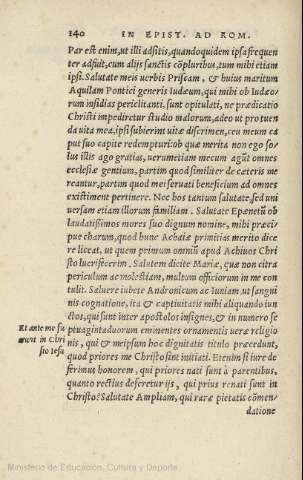 140 IN EPIST. AD ROM.
Par est enim, ut illi adsitis, quandoquidem ipsa frequen
ter adfuit, cum alijs sanctis cõpluribus, tum mihi etiam
ipsi. Salutate meis uerbis Priscam, & huius maritum
Aquilam Pontici generis Iudæum, qui mihi ob Iudæo-
rum insidias periclitanti. sunt opitulati, ne prædicatio
Christi impediretur studio malorum, adeo ut pro tuen
da uita mea, ipsi subierint uitæ discrimen, ceu meum ca
put suo capite redempturi: ob quæ merita non ego so-
lus illis ago gratias, uerumetiam mecum agũt omnes
ecclesiæ gentium, partim quod similiter de cæteris me
reantur, partim quod mei seruati beneficium ad omnes
existiment pertinere. Nec hos tantum salutate, sed uni
uersam etiam illorum familiam. Salutate Epænetũ ob
laudatissimos mores suo dignum nomine, mihi præci-
pue charum, quod hunc Achaiæ primitias merito dice
re liceat. ut quem primum omniũ apud Achiuos Chri
sto lucrifecerim. Salutem dicite Mariæ, quæ non citra
periculum ac molestiam, multum officiorum in me con
tulit. Saluere iubete Andronicum ac Iuniam, ut sangui
nis cognatione, ita & captiuitatis mihi aliquando iun
ctos, qui sunt inter apostolos insignes, & in numero se
Et ante me fu
erunt in Chri
sto Iesu
ptuagintaduorum eminentes ornamentis ueræ religio
nis, qui & meipsum hoc dignitatis titulo præcedunt,
quod priores me Christo sint initiati. Etenim si iure de
ferimus honorem, qui priores nati sunt à parentibus,
quanto rectius deferetur ijs, qui prius renati sunt in
Christo? Salutate Ampliam, qui raræ pietatis cõmen-
datione
Ministerio de Educación, Cultura y Deporte